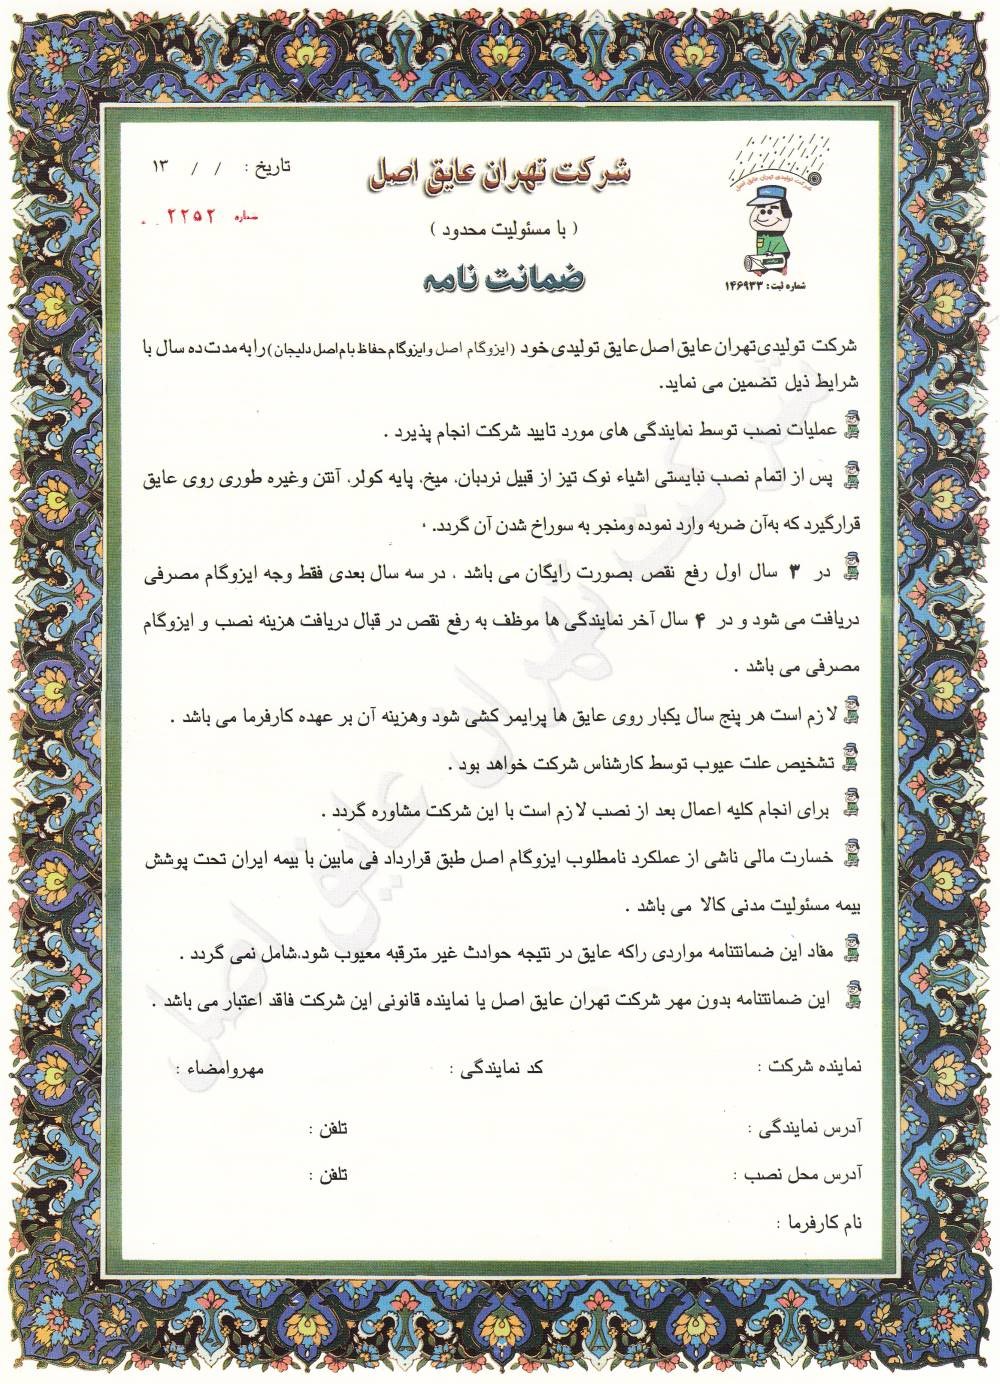 شرکت تولیدی تهران عایق اصل
شماره ثبت: ۱۴۶۹۳۳
شرکت تهران عایق اصل
( با مسئولیت محدود )
ضمانت نامه
تاریخ : / / ۱۳
شماره ۲۲۵۲
شرکت تولیدی تهران عایق اصل عایق تولیدی خود (ایزوگام اصل و ایزوگام حفاظ بام اصل دلیجان) را به مدت ده سال با
شرایط ذیل تضمین می نماید.
عملیات نصب توسط نمایندگی های مورد تایید شرکت انجام پذیرد .
پس از اتمام نصب نبایستی اشیاء نوک تیز از قبیل نردبان، میخ، پایه کولر، آنتن وغیره طوری روی عایق
قرارگیرد که به‌آن ضربه وارد نموده ومنجر به سوراخ شدن آن گردد.
در ۳ سال اول رفع نقص بصورت رایگان می باشد ، در سه سال بعدی فقط وجه ایزوگام مصرفی
دریافت می شود و در ۴ سال آخر نمایندگی ها موظف به رفع نقص در قبال دریافت هزینه نصب و ایزوگام
مصرفی می باشد .
لازم است هر پنج سال یکبار روی عایق ها پرایمر کشی شود وهزینه آن بر عهده کارفرما می باشد .
تشخیص علت عیوب توسط کارشناس شرکت خواهد بود .
برای انجام کلیه اعمال بعد از نصب لازم است با این شرکت مشاوره گردد .
خسارت مالی ناشی از عملکرد نامطلوب ایزوگام اصل طبق قرارداد فی مابین با بیمه ایران تحت پوشش
بیمه مسئولیت مدنی کالا می باشد .
مفاد این ضمانتنامه مواردی راکه عایق در نتیجه حوادث غیر مترقبه معیوب شود،شامل نمی گردد .
این ضمانتنامه بدون مهر شرکت تهران عایق اصل یا نماینده قانونی این شرکت فاقد اعتبار می باشد .
نماینده شرکت : کد نمایندگی : مهروامضاء :
آدرس نمایندگی : تلفن :
آدرس محل نصب : تلفن :
نام کارفرما :
شرکت تهران عایق اصل